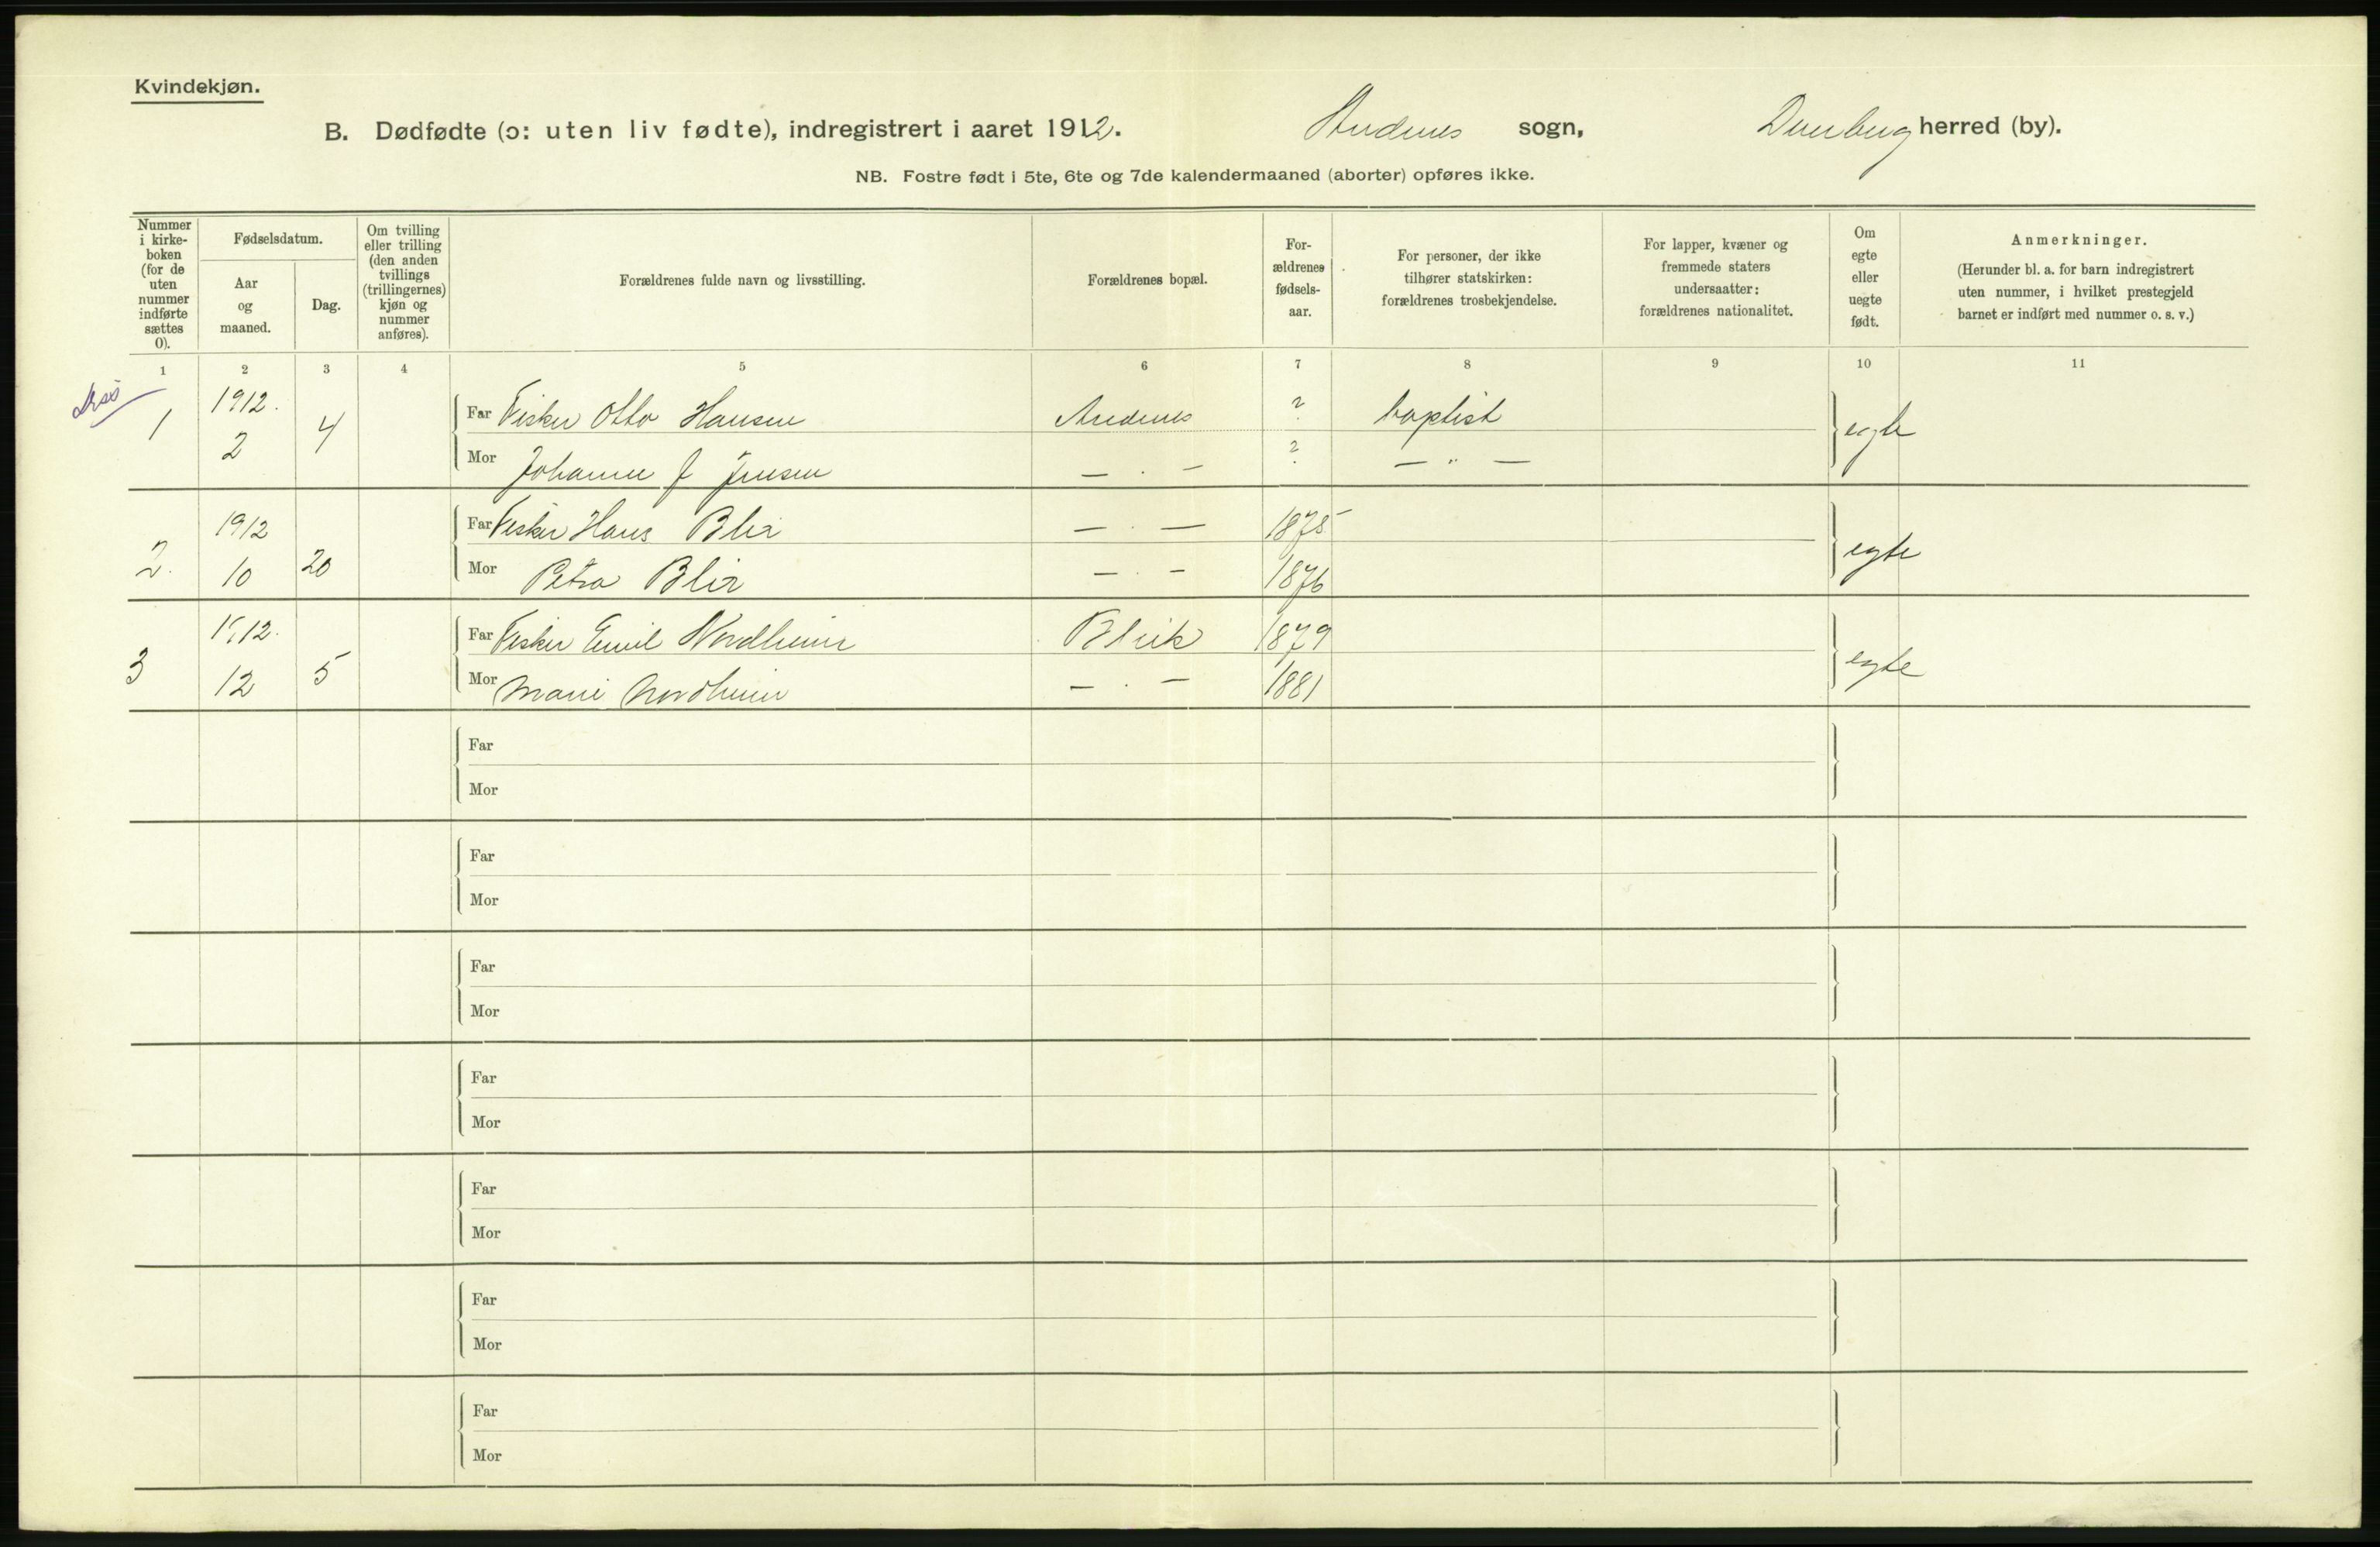 Kvindekjøn.
B. Dødfødte (ɔ: uten liv fødte), indregistrert i aaret 1912. Andenes sogn, Dverberg herred (by).
NB. Fostre født i 5te, 6te og 7de kalendermaaned (aborter) opføres ikke.
Nummer i kirke-boken (for de uten nummer indførte sættes 0).
Fødselsdatum.
Aar og maaned.
Dag.
Om tvilling eller trilling (den anden tvillings (trillingernes) kjøn og nummer anføres).
Forældrenes fulde navn og livsstilling.
Forældrenes bopæl.
For-ældrenes fødsels-aar.
For personer, der ikke tilhører statskirken: forældrenes trosbekjendelse.
For lapper, kvæner og fremmede staters undersaatter: forældrenes nationalitet.
Om egte eller uegte født.
Anmerkninger.
(Herunder bl. a. for barn indregistrert uten nummer, i hvilket prestegjeld barnet er indført med nummer o. s. v.)
1 2 3 4 5 6 7 8 9 10 11
1 1912. 2 4 Far Fisker Otto Hansen Andenes ? baptist egte
Mor Johanne J Jensen — . — ? — " —
2. 1912 10 20 Far Fisker Hans Blix — . — 1875 egte
Mor Petra Blix — . — 1876
3 1912. 12 5 Far Fisker Emil Nordheim Bleik 1879 egte
Mor Marie Nordheim — . — 1881
Far
Mor
Far
Mor
Far
Mor
Far
Mor
Far
Mor
Far
Mor
Far
Mor